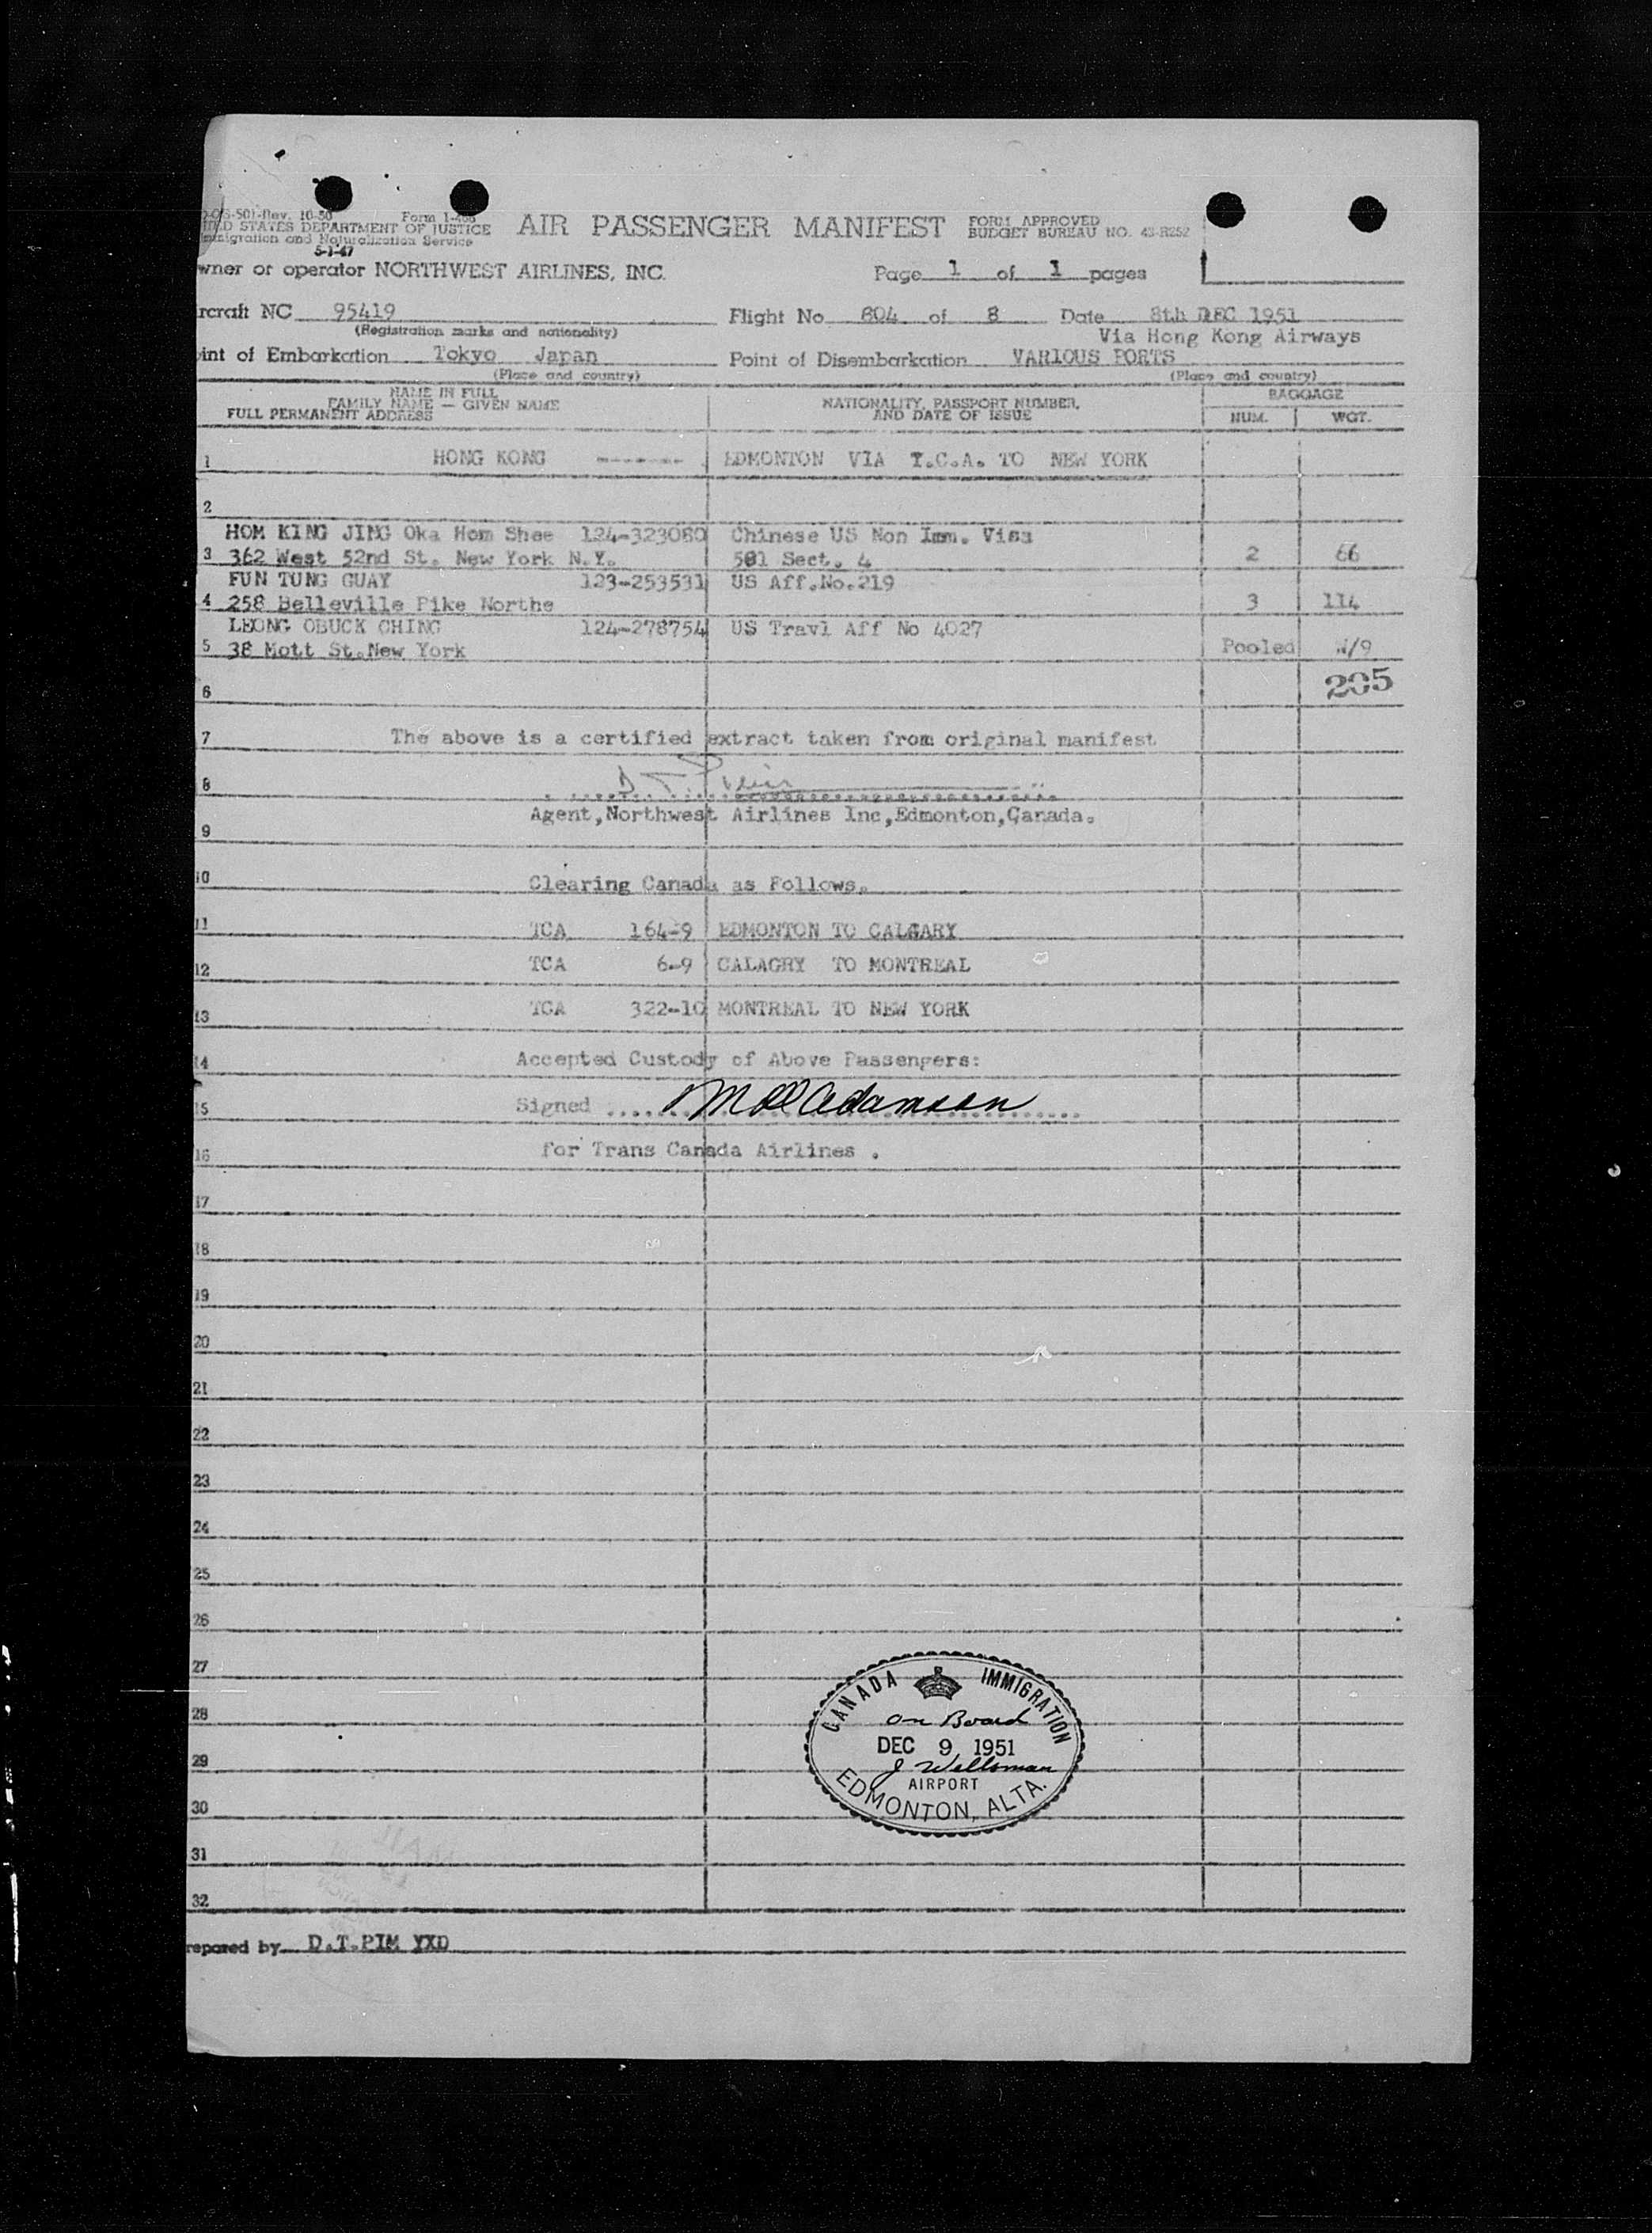 -OS-501-Rev. 10-50 Form I-466
STATES DEPARTMENT OF JUSTICE
Immigration and Naturalization Service
5-1-47
AIR PASSENGER MANIFEST
FORM APPROVED
BUDGET BUREAU NO. 43-R252
wner or operator NORTHWEST AIRLINES, INC.
Page 1 of 1 pages
rcraft NC 95419
(Registration marks and nationality)
Flight No 804 of 8 Date 8th DEC 1951
Via Hong Kong Airways
int of Embarkation Tokyo Japan
(Place and country)
Point of Disembarkation VARIOUS PORTS
(Place and country)
NAME IN FULL
FAMILY NAME — GIVEN NAME
FULL PERMANENT ADDRESS
NATIONALITY, PASSPORT NUMBER,
AND DATE OF ISSUE
BAGGAGE
NUM. WGT.
1 HONG KONG ------- EDMONTON VIA T.C.A. TO NEW YORK
2
HOM KING JING Oka Hom Shee 124-323080 Chinese US Non Imm. Visa
3 362 West 52nd St. New York N.Y. 501 Sect. 4 2 66
FUN TUNG GUAY 123-253531 US Aff.No.219
4 258 Belleville Pike Northe 3 114
LEONG OBUCK CHING 124-278754 US Travl Aff No 4027
5 38 Mott St.New York Pooled W/9
6 205
7 The above is a certified extract taken from original manifest
8
Agent,Northwest Airlines Inc,Edmonton,Canada.
9
10 Clearing Canada as Follows.
11 TCA 164-9 EDMONTON TO CALGARY
12 TCA 6-9 CALAGRY TO MONTREAL
13 TCA 322-10 MONTREAL TO NEW YORK
14 Accepted Custody of Above Passengers:
15 Signed ..... Adamson .....
16 for Trans Canada Airlines .
17
18
19
20
21
22
23
24
25
26
27
28
29
30
31
32
CANADA IMMIGRATION
on Board
DEC 9 1951
J Wellsman
AIRPORT
EDMONTON, ALTA.
repared by D.T.PIM YXD